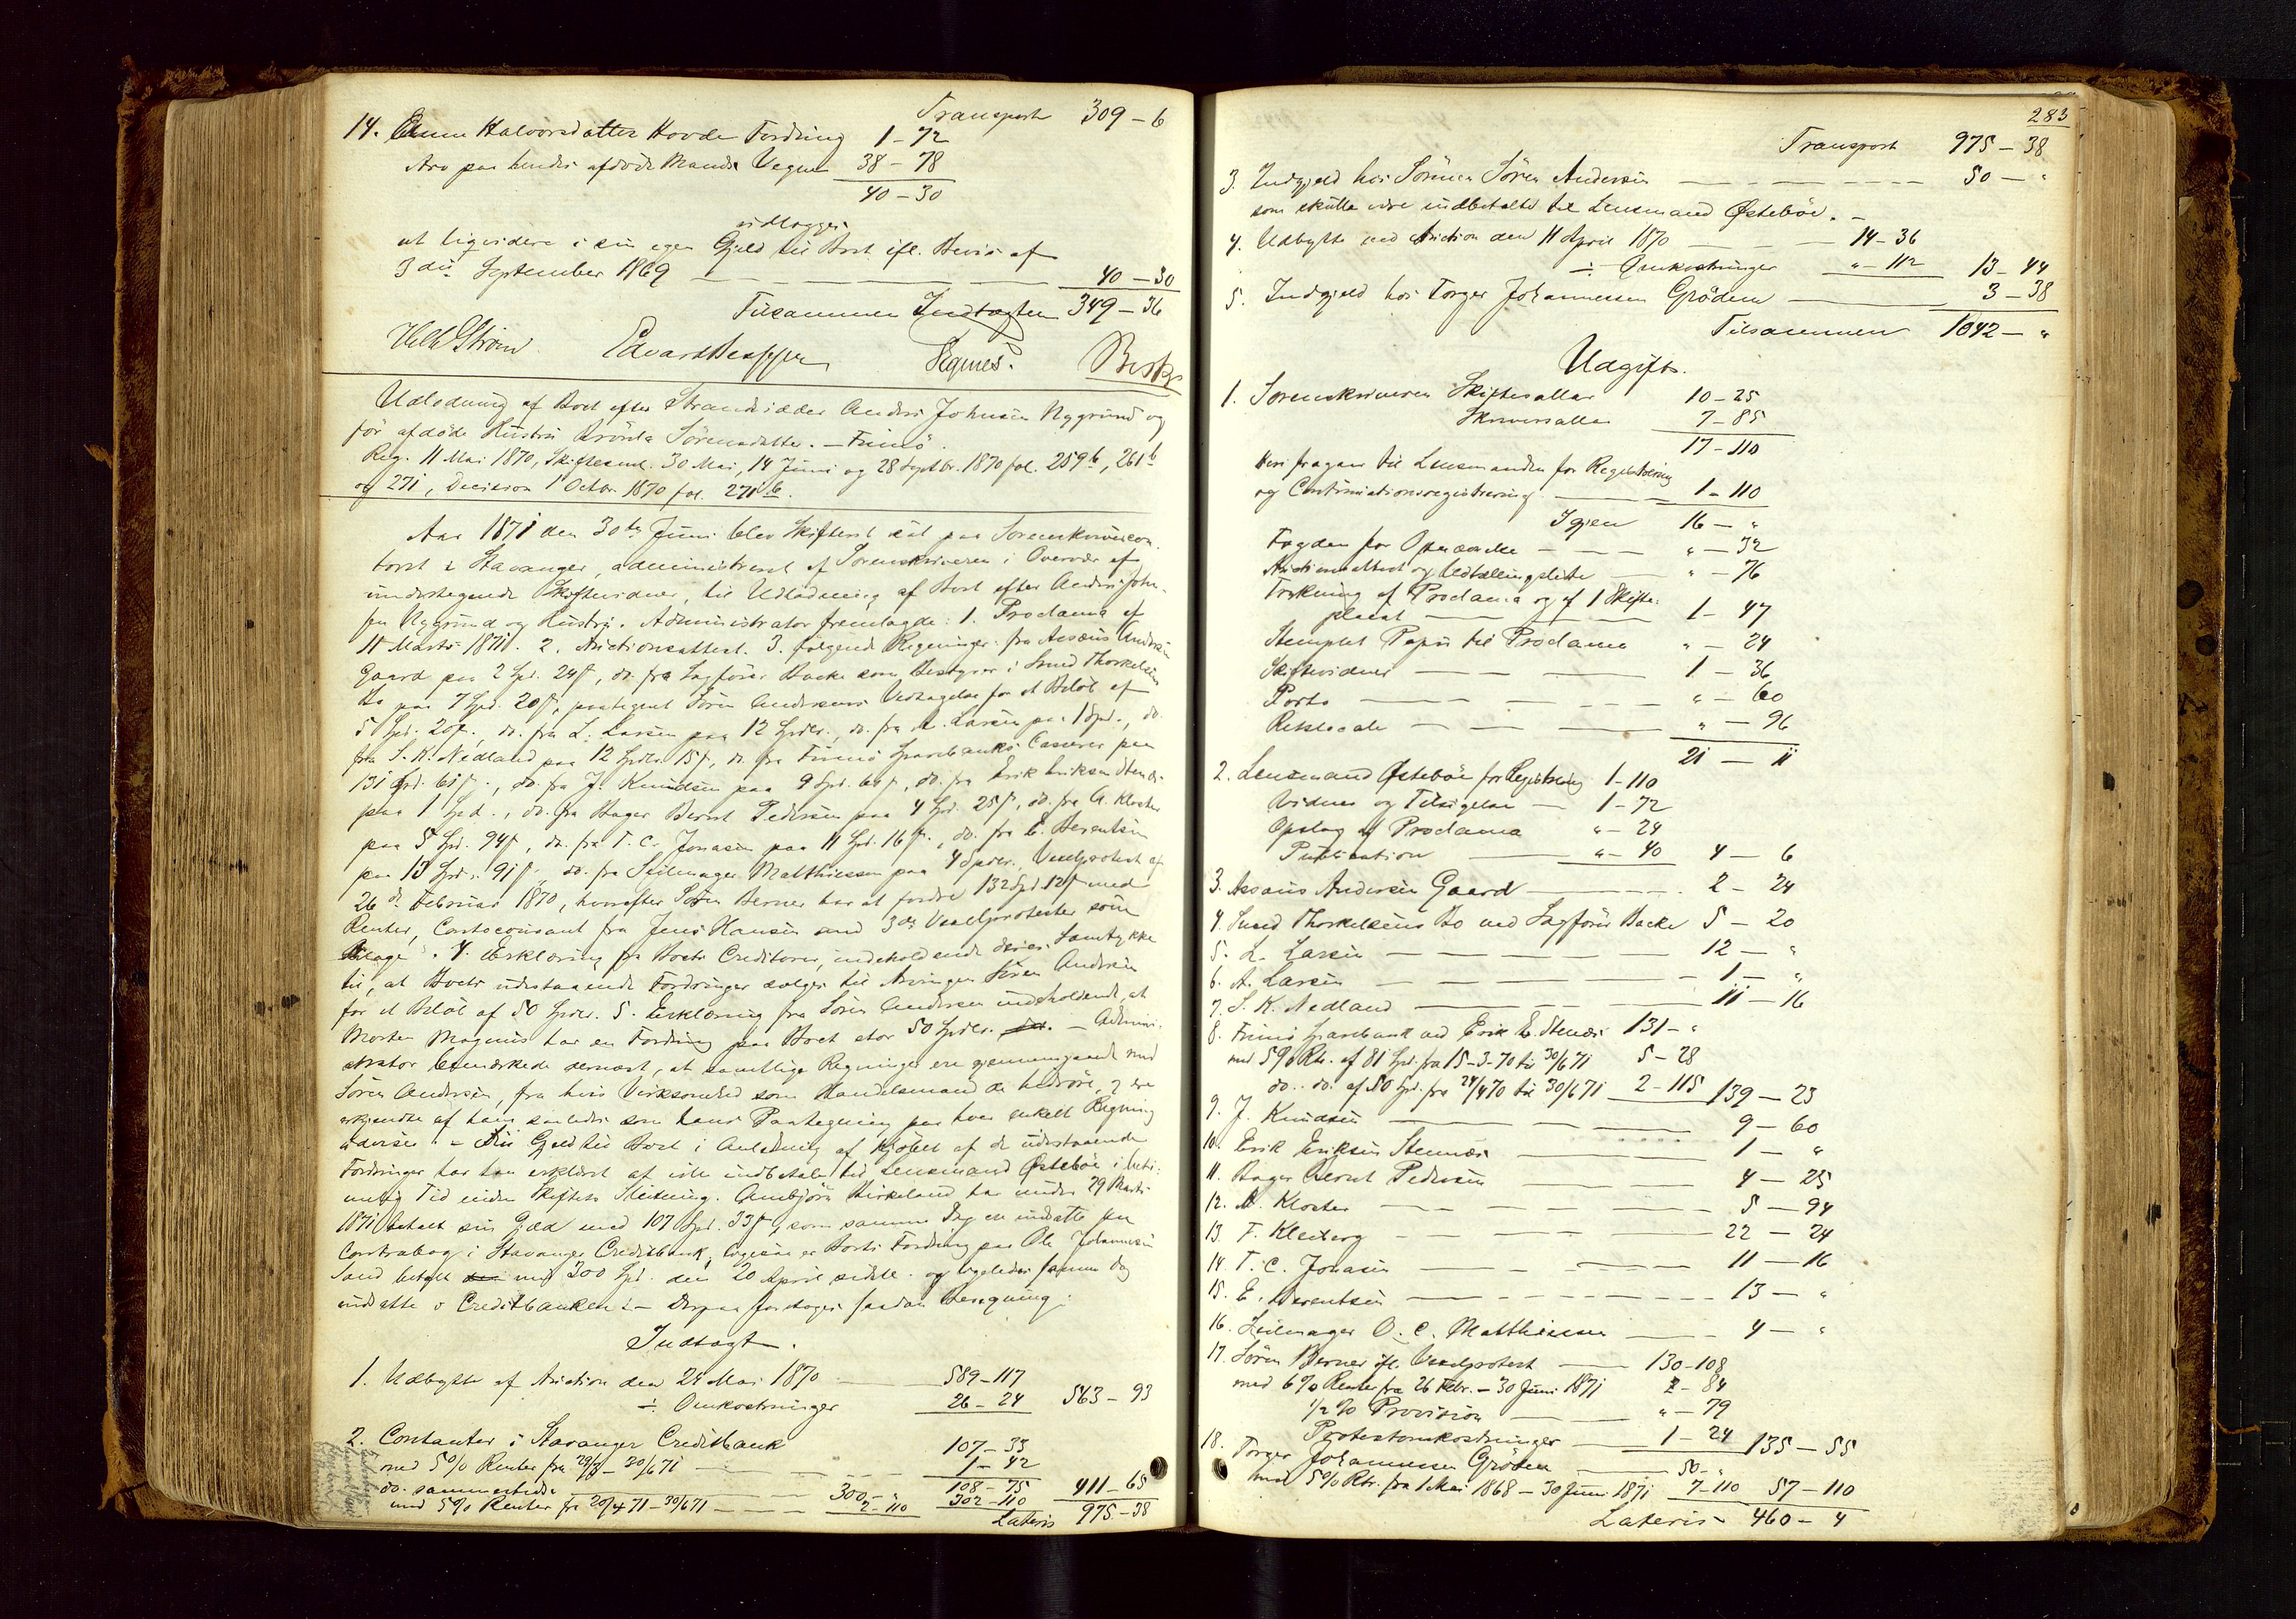 Transport 309 – 6
14. Anne Halvorsdatter Hovda Fordring 1 – 72
Arv paa hendes afdøde Mands Vegne 38 – 78
40 – 30
udlægges
at liqvidere i sin egen Gjeld til Boet ifl. Bevis af
3die September 1869 40 – 30
Tilsammen Indtægten 349 – 36
Udlodning af Boet efter Strandsidder Anders Johnsen Nygrund og
før afdøde Hustru Sørensdatter. – Finnø.
Reg. 11 Mai 1870, Skiftesaml. 30 Mai, 14 Juni og 28 Septbr. 1870 fol. 259b, 261b
og 271, Decision 1 Octbr. 1870 fol. 271b.
Aar 1871 den 30te Juni blev Skifteret sat paa Sorenskrivercon-
toret i Stavanger, administreret af Sorenskriveren i Overvær af
undertegnede Skiftevidner, til Udlodning af Boet efter Anders John-
sen Nygrund og Hustru. Administrator fremlagde: 1. Proclama af
11 Marts 1871. 2. Auctionsattest. 3. følgende Regninger: fra Assæus Andersen
Gaard paa 2 Spd. 24 s, do. fra Sagfører Backe som Bestyrer i Svend Thorkelsens
Bo paa 7 Spd. 20 s, paategnet Søren Andersens Vedtagelse for et Beløb af
5 Spd. 20 s., do. fra L. Larsen paa 12 Spdlr., do. fra A. Larsen paa 1 Spd., do.
fra S. K. Nedland paa 12 Spdlr. 15 s, do. fra Finnø Sparebanks Casserer paa
131 Spd. 61 s., do. fra J. Knudsen paa 9 Spd. 60 s, do. fra Erik Eriksen Stennes
paa 1 Spd., do. fra Bager Bernt Pedersen paa 4 Spd. 25 s, do. fra A. Kloster
paa 5 Spd. 94 s, do. fra T. C. Jonasen paa 11 Spd. 16 s., do. fra E. Berentsen
paa 13 Spd. 91 s, do. fra Seilmager Matthiessen paa 4 Spdlr., Vexelprotest af
26de Februar 1870, hvorefter Søren Berner har at fordre 132 Spd. 12 s med
Renter, Contocourant fra Jens Hansen med 3de Vexelprotester som
Bilage. 4. Erklæring fra Boets Creditorer, indeholdende deres Samtykke
til, at Boets udestaaende Fordringer sælges til Arvingen Søren Andersen
for et Beløb af 50 Spdlr. 5. Erklæring fra Søren Andersen indeholdende, at
Morten Magnus har en Fordring paa Boet stor 50 Spdlr. – Admini-
strator bemærkede dernæst, at samtlige Regninger ere gjennemgaaede med
Søren Andersen, fra hvis Virksomhed som Handelsmand de hidrøre, og ere
erkjendte af ham saaledes som hans Paategning paa hver enkelt Regning
udviser. – Sin Gjeld til Boet i Anledning af Kjøbet af de udestaaende
Fordringer har han erklæret at ville indbetale til Lensmand Østebøe i beti-
melig Tid inden Skiftets Slutning. Annbjørn Birkeland har under 29 Marts
1871 betalt sin Gjæld med 107 Spd. 33 s, som samme Dag ere indsatte paa
Contrabog i Stavanger Creditbank, ligesaa er Boets Fordring paa Ole Johannesen
Sand betalt med 300 Spd. den 20 April sidstl. og ligeledes samme Dag
indsatte i Creditbanken. – Derpaa foretoges saadan Beregning:
Indtægt.
1. Udbytte af Auction den 24 Mai 1870 589 – 117
÷ Omkostninger 26 – 24 563 – 93
2. Contanter i Stavanger Creditbank 107 – 33
med 5% Renter fra 29/3 – 30/6 71 1 – 42
108 – 75
do. sammesteds 300 – "
med 5% Renter fra 20/4 71 – 30/6 71 2 – 110 302 – 110 411 – 65
Lateris 975 – 38
283
Transport 975 – 38
3. Indgjeld hos Sønnen Søren Andersen 50 – "
som skulle være indbetalte til Lensmand Østebøe. –
4. Udbytte ved Auction den 11 April 1870 14 – 36
÷ Omkostninger " – 112 13 – 44
5. Indgjeld hos Torger Johannesen Grødem 3 – 38
Tilsammen 1042 – "
Udgift.
1. Sorenskriveren Skiftesallar 10 – 25
Skriversallar 7 – 85
17 – 110
Heri fragaar til Lensmanden for Registrering
og Continuationsregistrering 1 – 110
Igjen 16 – "
Fogden for Opnævnelse " – 32
Auctionsattest og Udtællingsliste " – 76
Trykning af Proclama og af 1 Skifte-
placat 1 – 47
Stemplet Papir til Proclama " – 24
Skiftevidner 1 – 36
Porto " – 60
Retslocale " – 96
21 – 11
2. Lensmand Østebøe for Registrering 1 – 110
Vidner og Tilsigelse 1 – 72
Opslag af Proclama " – 24
Publication " – 40 4 – 6
3. Assæus Andersen Gaard 2 – 24
4. Svend Thorkelsens Bo ved Sagfører Backe 5 – 20
5. L. Larsen 12 – "
6. A. Larsen 1 – "
7. S. K. Nedland 11 – 16
8. Finnø Sparebank ved Erik E. Stennes 131 – "
med 5% Rtr. af 81 Spd. fra 15-3-70 til 30/6 71 5 – 28
do. do. af 50 Spd. fra 24/4 70 til 30/6 71 2 – 115 139 – 23
9. J. Knudsen 9 – 60
10. Erik Eriksen Stennes 1 – "
11. Bager Bernt Pedersen 4 – 25
12. A. Kloster 5 – 94
13. F. Kleiberg 22 – 24
14. T. C. Jonasen 11 – 16
15. E. Berentsen 13 – "
16. Seilmager O. C. Matthiessen 4 – "
17. Søren Berner ifl. Vexelprotest 130 – 108
med 6% Renter fra 26 Febr. – 30 Juni 1871 2 – 84
1/2 % Provision " – 79
Protestomkostninger 1 – 24 135 – 55
18. Torger Johannesen Grødem 50 – "
med 5% Rtr. fra 1 Mai 1868 – 30 Juni 1871 7 – 110 57 – 110
Lateris 460 – 4